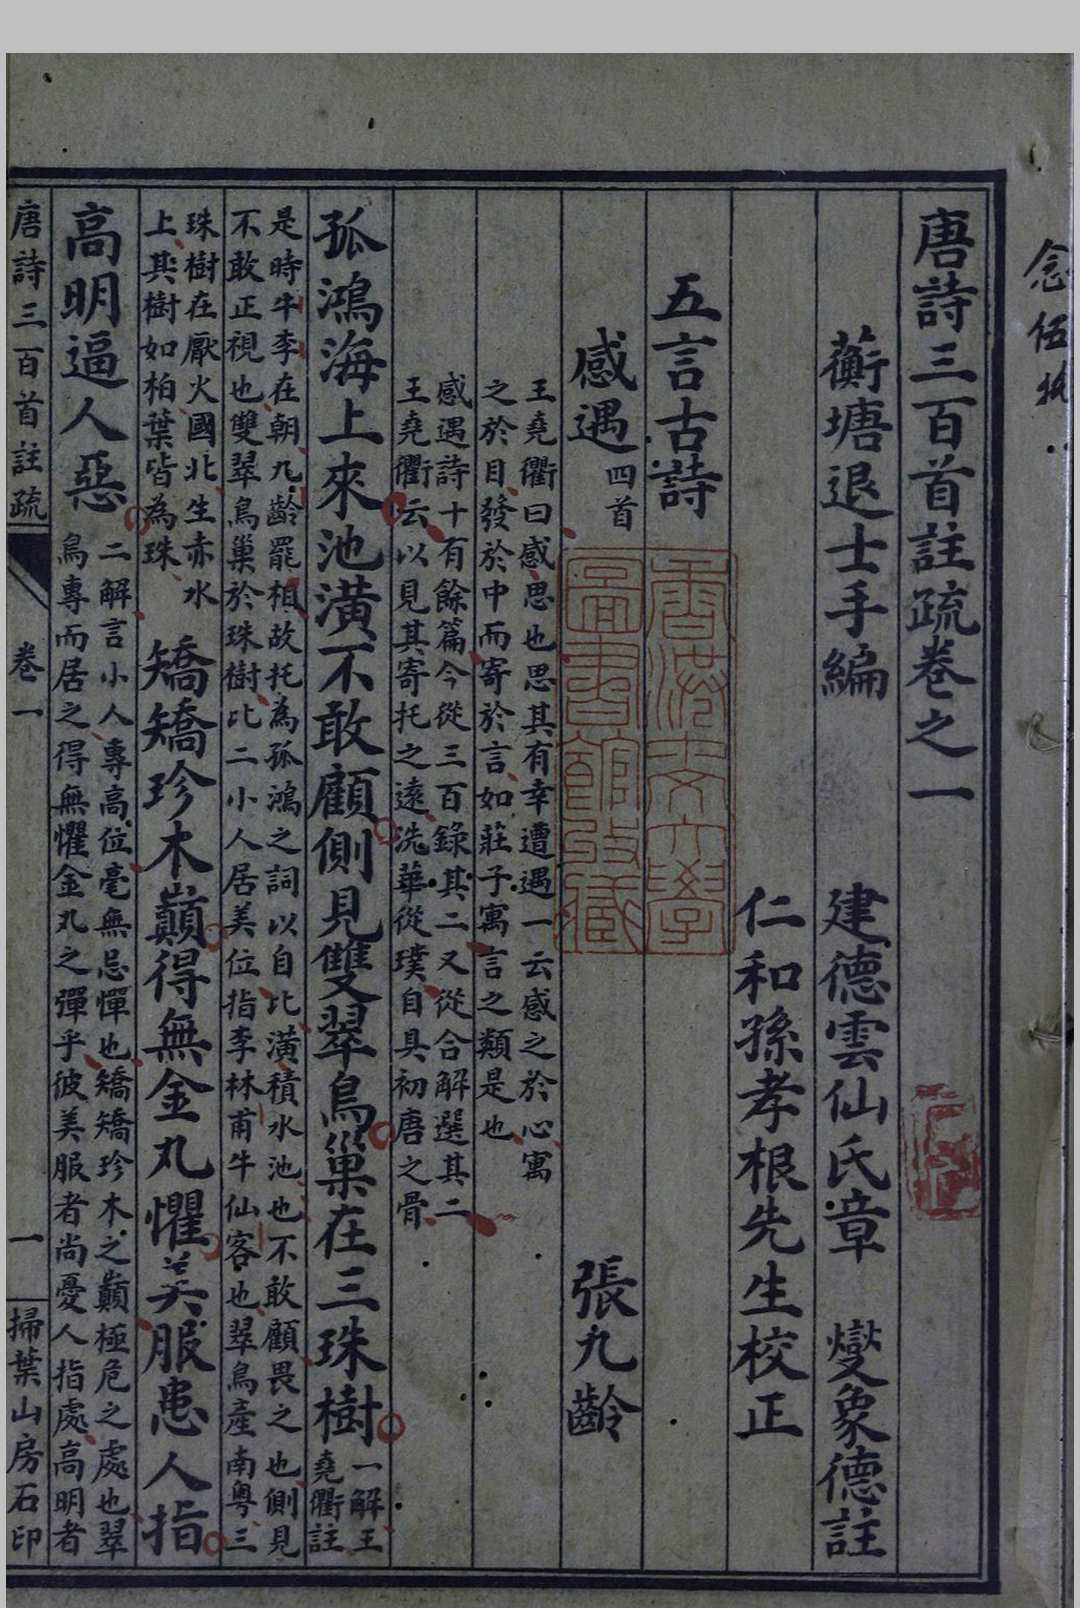 念伍
唐詩三百首註疏卷之一
蘅塘退士手編 建德雲仙氏章 燮象德註
仁和孫孝根先生校正
五言古詩
感遇四首 張九齡
圖書館收藏
王堯衢曰感思也思其有幸遭遇一云感之於心寓
之於目發於中而寄於言如莊子寓言之類是也
感遇詩十有餘篇今從三百錄其二又從合解選其二
王堯衢云以見其寄托之遠洗華從璞自具初唐之骨
孤鴻海上來池潢不敢顧側見雙翠鳥巢在三珠樹
一解王
堯衢註
是時牛李在朝九齡罷相故托為孤鴻之詞以自比潢積水池也不敢顧畏之也側見
不敢正視也雙翠鳥巢於珠樹比二小人居美位指李林甫牛仙客也翠鳥產南粵三
珠樹在厭火國北生赤水
上其樹如柏葉皆為珠
矯矯珍木巔得無金丸懼美服患人指
高明逼人惡
二解言小人專高位毫無忌憚也矯矯珍木之巔極危之處也翠
鳥專而居之得無懼金丸之彈乎彼美服者尚憂人指處高明者
唐詩三百首註疏 卷一 一 掃葉山房石印